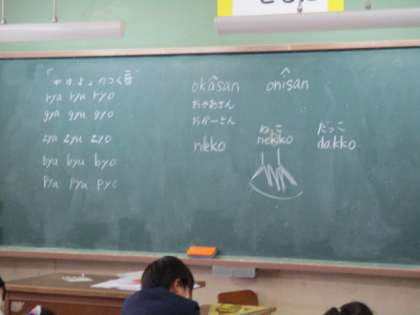 「ゃゅょ」のつく音
rya ryu ryo
gya gyu gyo
zya zyu zyo
bya byu byo
pya pyu pyo
okâsan
おかあさん
おかーさん
neko
onîsan
ねっこ
nekko
だっこ
dakko